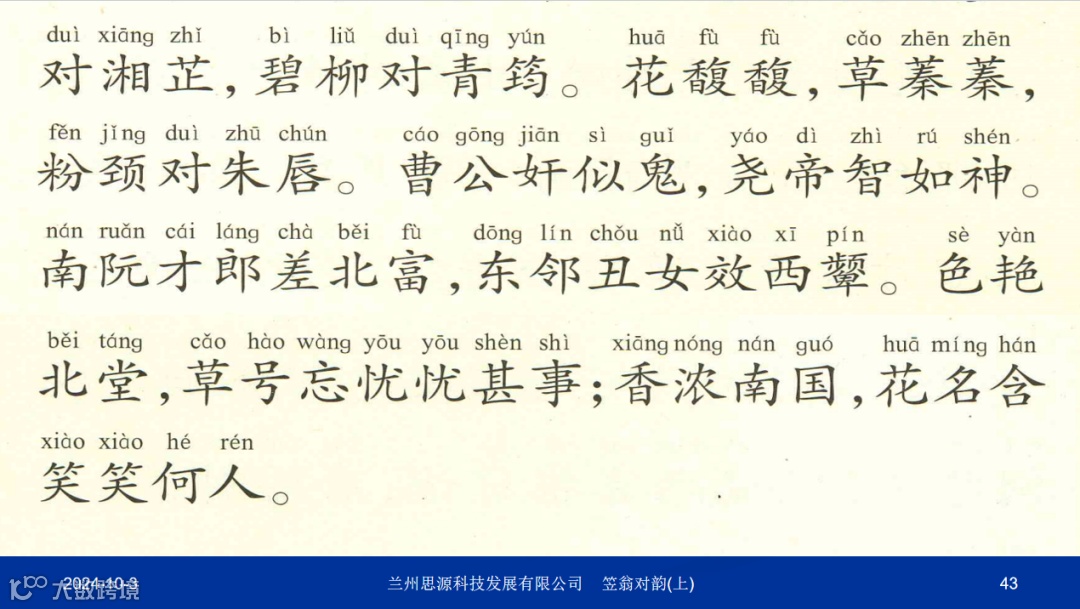 duì xiāng zhǐ bì liǔ duì qīng yún huā fù fù cǎo zhēn zhēn
对湘芷,碧柳对青筠。花馥馥,草蓁蓁,
fěn jǐng duì zhū chún cáo gōng jiān sì guǐ yáo dì zhì rú shén
粉颈对朱唇。曹公奸似鬼,尧帝智如神。
nán ruǎn cái láng chà běi fù dōng lín chǒu nǚ xiào xī pín sè yàn
南阮才郎差北富,东邻丑女效西颦。色艳
běi táng cǎo hào wàng yōu yōu shèn shì xiāng nóng nán guó huā míng hán
北堂,草号忘忧忧甚事;香浓南国,花名含
xiào xiào hé rén
笑笑何人。
2024-10-3 兰州思源科技发展有限公司 笠翁对韵(上) 43
大数跨境